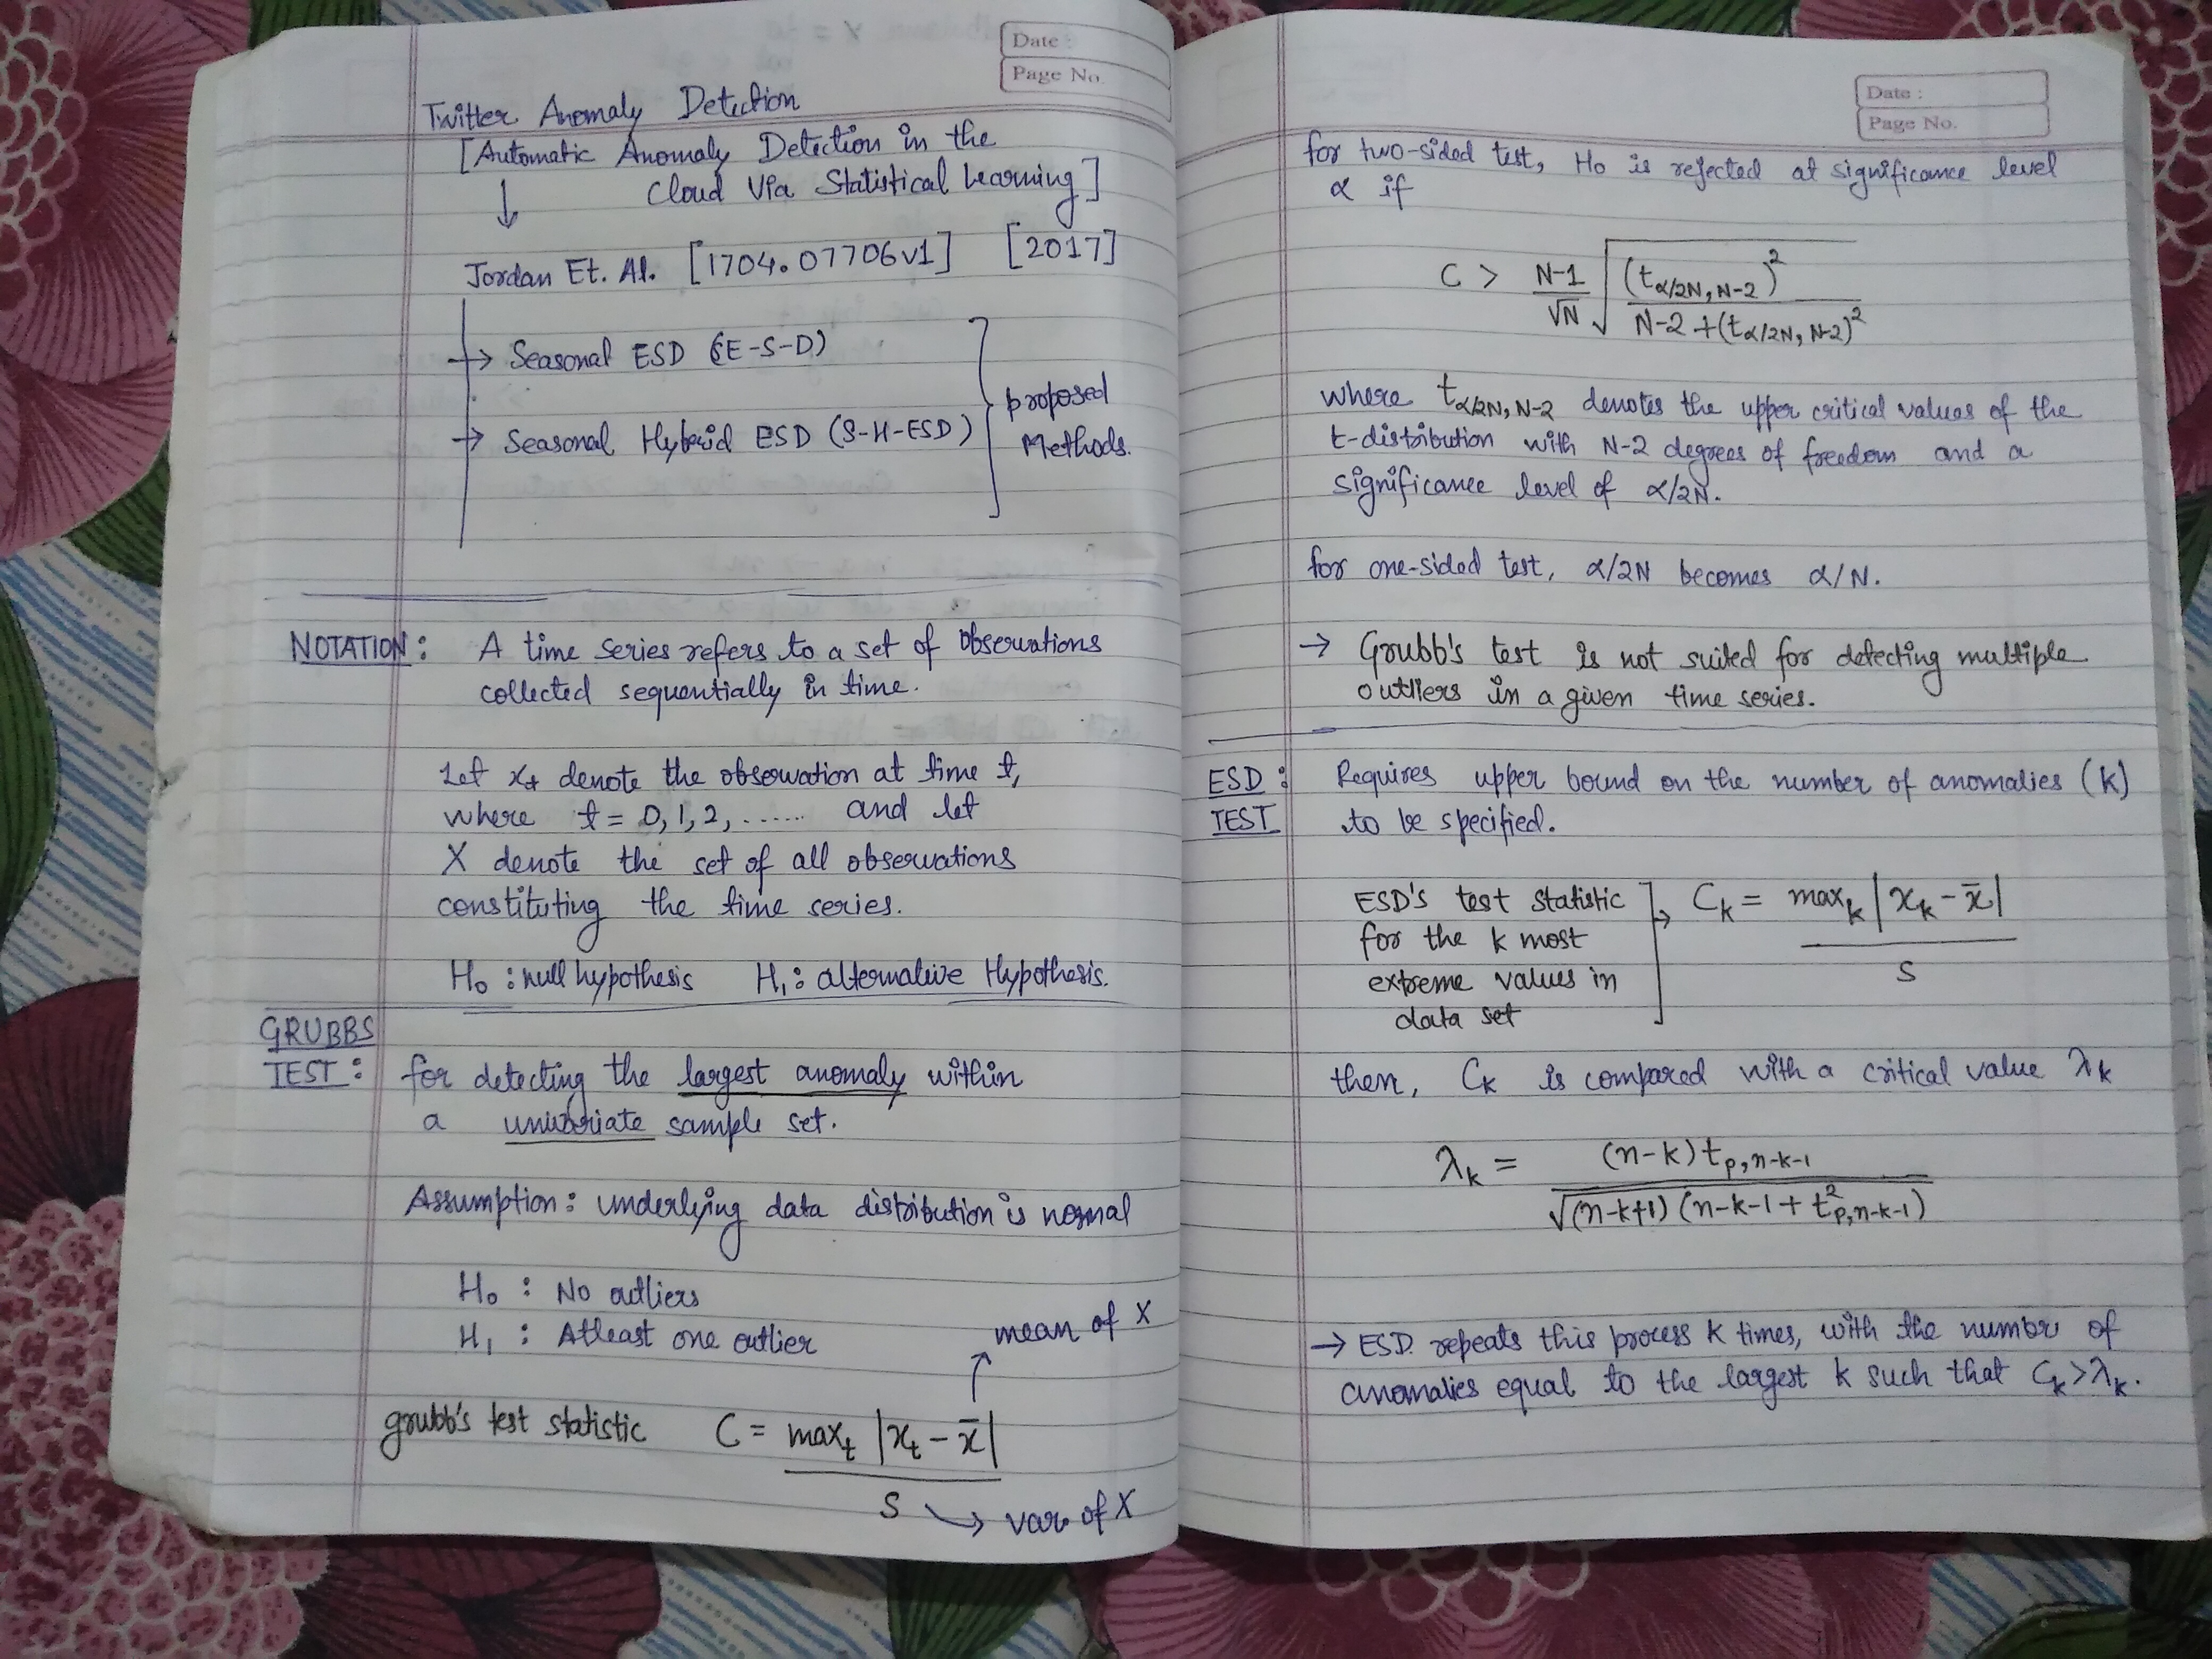 Date :
Page No.
Twitter Anomaly Detection
[Automatic Anomaly Detection in the
Cloud Via Statistical Learning]
↓
Jordan Et. Al. [1704.07706v1] [2017]
→ Seasonal ESD (SE-S-D)
→ Seasonal Hybrid ESD (S-H-ESD)
proposed
Methods.
NOTATION: A time series refers to a set of observations
collected sequentially in time.
Let xt denote the observation at time t,
where t = 0, 1, 2, ...... and let
X denote the set of all observations
constituting the time series.
H₀ : null hypothesis H₁ : alternative Hypothesis.
GRUBBS
TEST : for detecting the largest anomaly within
a univariate sample set.
Assumption : underlying data distribution is normal
H₀ : No outliers
H₁ : Atleast one outlier
mean of X
grubb's test statistic C = maxt |xt - x̄|
S → var of X
Date :
Page No.
for two-sided test, H₀ is rejected at significance level
α if
C > N-1/√N √((tα/2N, N-2)² / N-2 + (tα/2N, N-2)²)
where tα/2N, N-2 denotes the upper critical values of the
t-distribution with N-2 degrees of freedom and a
significance level of α/2N.
for one-sided test, α/2N becomes α/N.
→ Grubb's test is not suited for detecting multiple
outliers in a given time series.
ESD : Requires upper bound on the number of anomalies (k)
TEST to be specified.
ESD's test statistic
for the k most
extreme values in
data set
Ck = maxk |xk - x̄|
S
then, Ck is compared with a critical value λk
λk = (n-k) tp,n-k-1
√(n-k+1) (n-k-1 + t²p,n-k-1)
→ ESD repeats this process k times, with the number of
anomalies equal to the largest k such that Ck > λk.